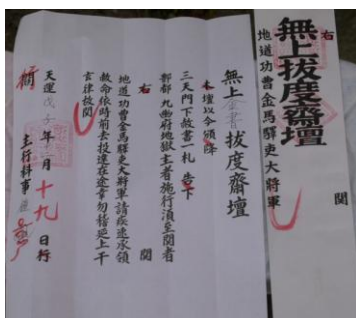 右
無上拔度齋壇
地道功曹金馬驛吏大將軍
關
無上金書拔度齋壇
本壇以今頒降
三天門下赦書一札 告下
酆都九幽府地獄主者施行須至關者
右 關
地道功曹金馬驛吏大將軍請疾速承領
赦命依時前去投達在途幸勿稽延上干
玄律故關
天運戊子年 月十九日行
主行科事